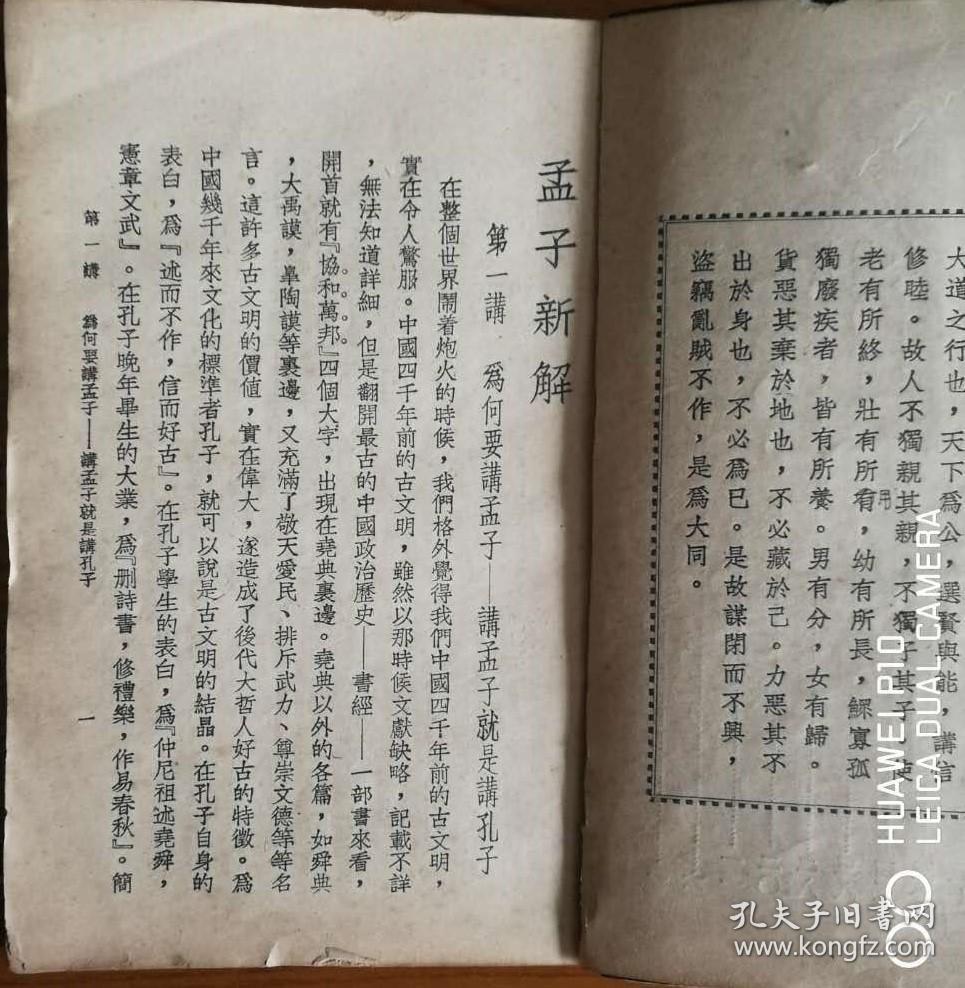 大道之行也，天下爲公，選賢與能，講信
修睦。故人不獨親其親，不獨子其子，使
老有所終，壯有所用，幼有所長，鰥寡孤
獨廢疾者，皆有所養。男有分，女有歸。
貨惡其棄於地也，不必藏於己。力惡其不
出於身也，不必爲已。是故謀閉而不興，
盜竊亂賊不作，是爲大同。
孟子新解
第一講　爲何要講孟子——講孟子就是講孔子
在整個世界鬧着炮火的時候，我們格外覺得我們中國四千年前的古文明，
實在令人驚服。中國四千年前的古文明，雖然以那時候文獻缺略，記載不詳
，無法知道詳細，但是翻開最古的中國政治歷史——書經——一部書來看，
開首就有『協和萬邦』四個大字，出現在堯典裏邊。堯典以外的各篇，如舜典
，大禹謨，臯陶謨等裏邊，又充滿了敬天愛民、排斥武力、尊崇文德等等名
言。這許多古文明的價値，實在偉大，遂造成了後代大哲人好古的特徵。爲
中國幾千年來文化的標準者孔子，就可以說是古文明的結晶。在孔子自身的
表白，爲『述而不作，信而好古』。在孔子學生的表白，爲『仲尼祖述堯舜，
憲章文武』。在孔子晚年畢生的大業，爲『删詩書，修禮樂，作易春秋』。簡
第一講　爲何要講孟子——講孟子就是講孔子　一
HUAWEI P10
LEICA DUAL CAMERA
孔夫子旧书网
www.kongfz.com